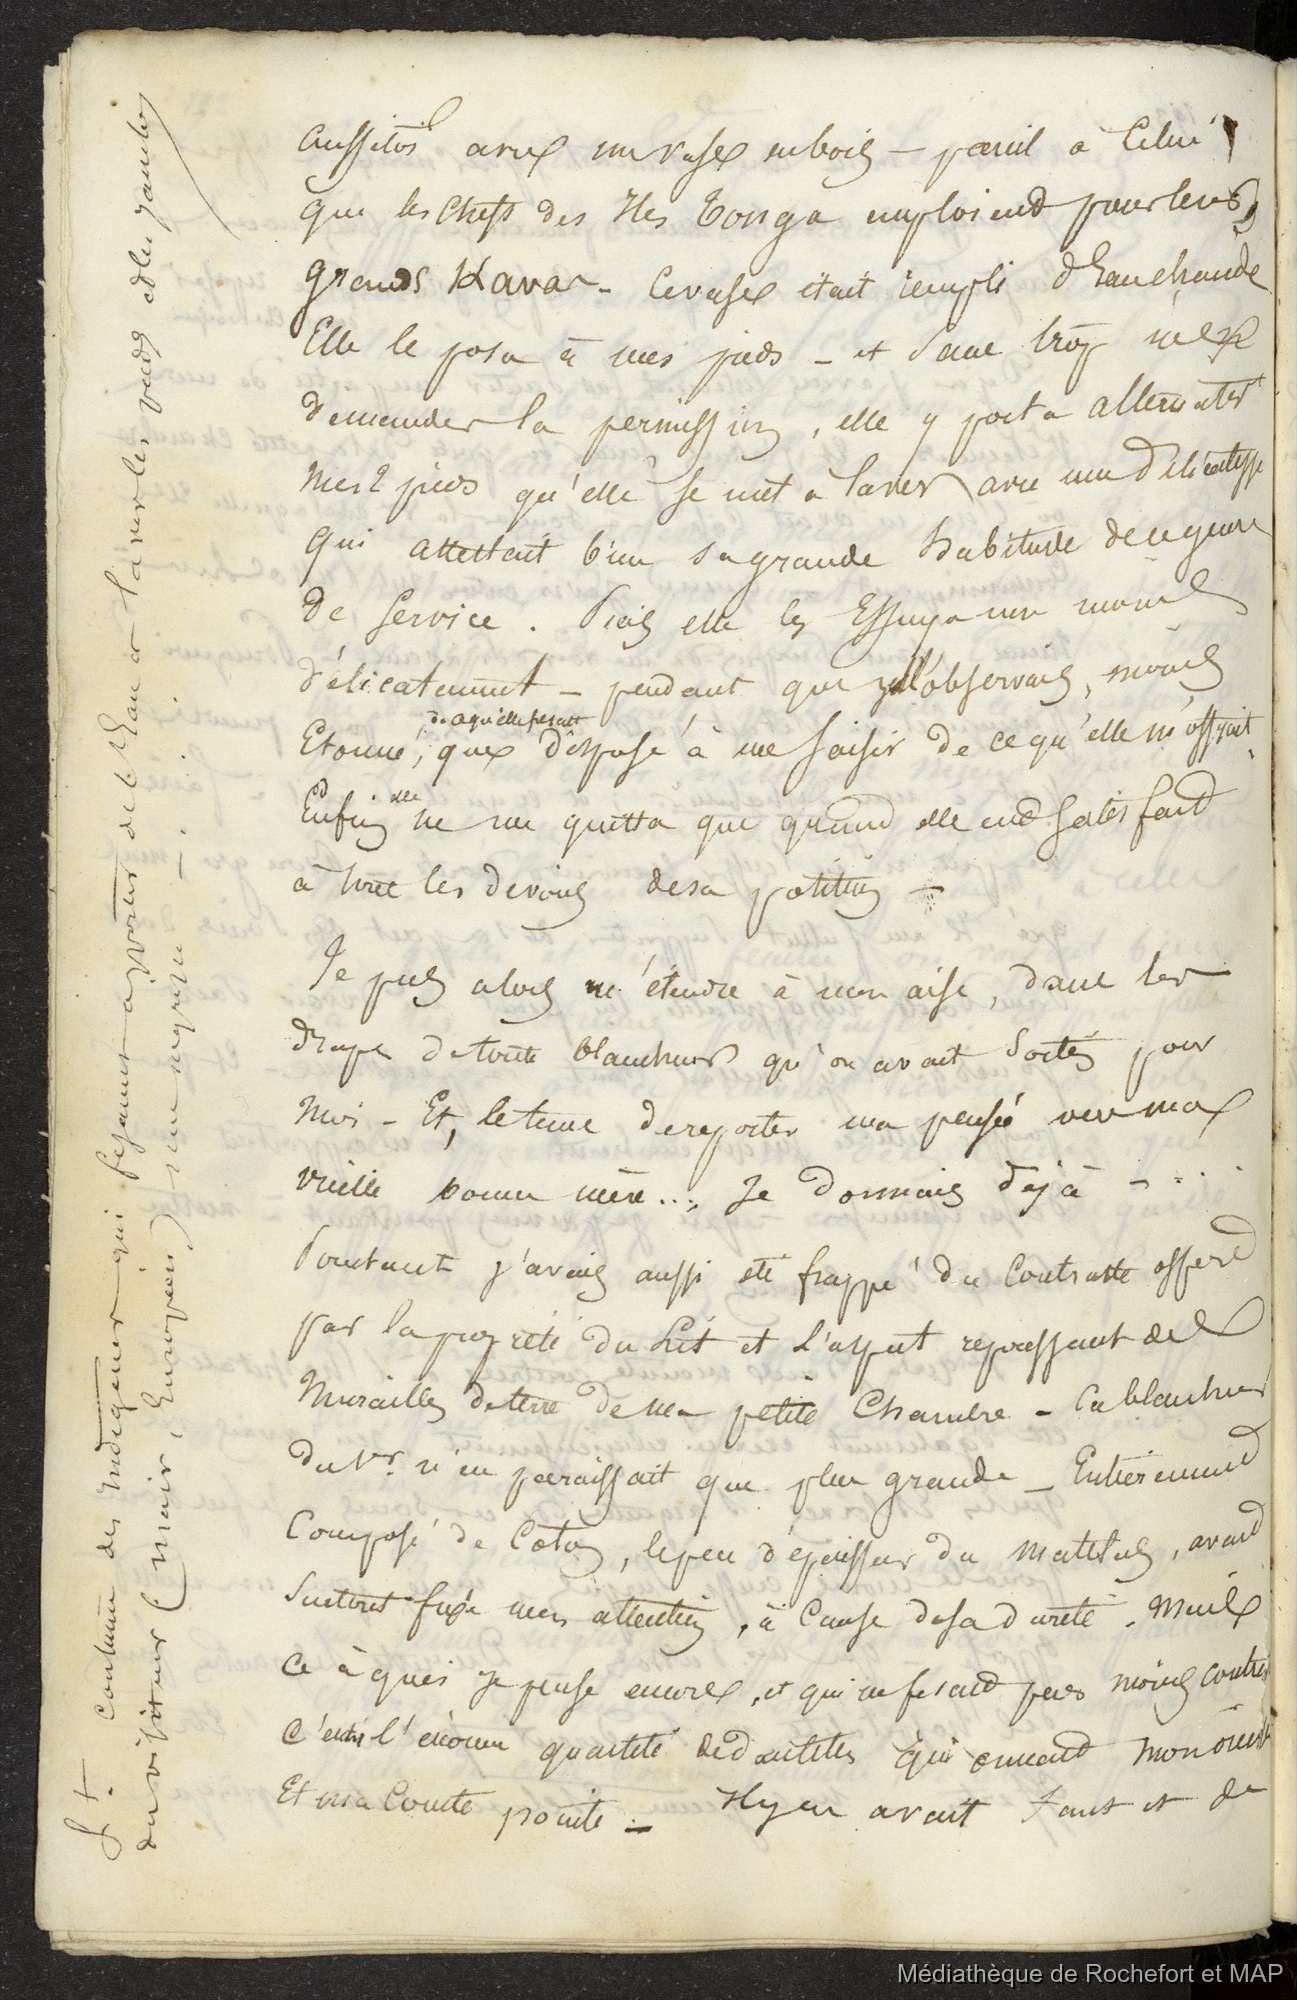 aussitôt avec un vase en bois – pareil à celui
que les chefs des Iles Tonga emploient pour leurs
grands Kavas – ce vase était rempli d'eau chaude
Elle le posa à mes pieds – et sans trop me
demander la permission, elle y porta alternatet
mes 2 pieds qu'elle se mit à laver avec une délicatesse
qui attestait bien sa grande habitude de ce genre
de service. Puis elle les essuya non moins
délicatement – pendant que je l'observais, moins
de ce qu'elle fesait
Etonné, que disposé à me saisir de ce qu'elle m'offrait.
elle
Enfin ne me quitta que quand elle eut satisfait
à tous les devoirs de sa position –
Je pus alors m'étendre à mon aise, dans les
draps de toute blancheur qu'on avait sortis pour
moi – Et, le tems de reporter ma pensée vers ma
vieille bonne mère... Je dormais déjà – ...
Pourtant j'avais aussi été frappé du contraste offert
par la propreté du Lit et l'aspect repoussant des
murailles de terre de ma petite chambre – la blancheur
du 1er. n'en paraissait que plus grande – Entièrement
composé de coton, le peu d'épaisseur du matelas, avait
surtout fixé mon attention, à cause de sa dureté. Mais
ce à quoi je pense encore, et qui ne fesait pas moins contraste
c'était l'énorme quantité de dentelles qui ornait mon oreiller
Et ma courte pointe – Il y en avait tant et de
+. coutume des Indigènes qui fesaient apporter de l'eau à laver les pieds et les jambes
du visiteur (mais, Européen) sans mépris – . . . .